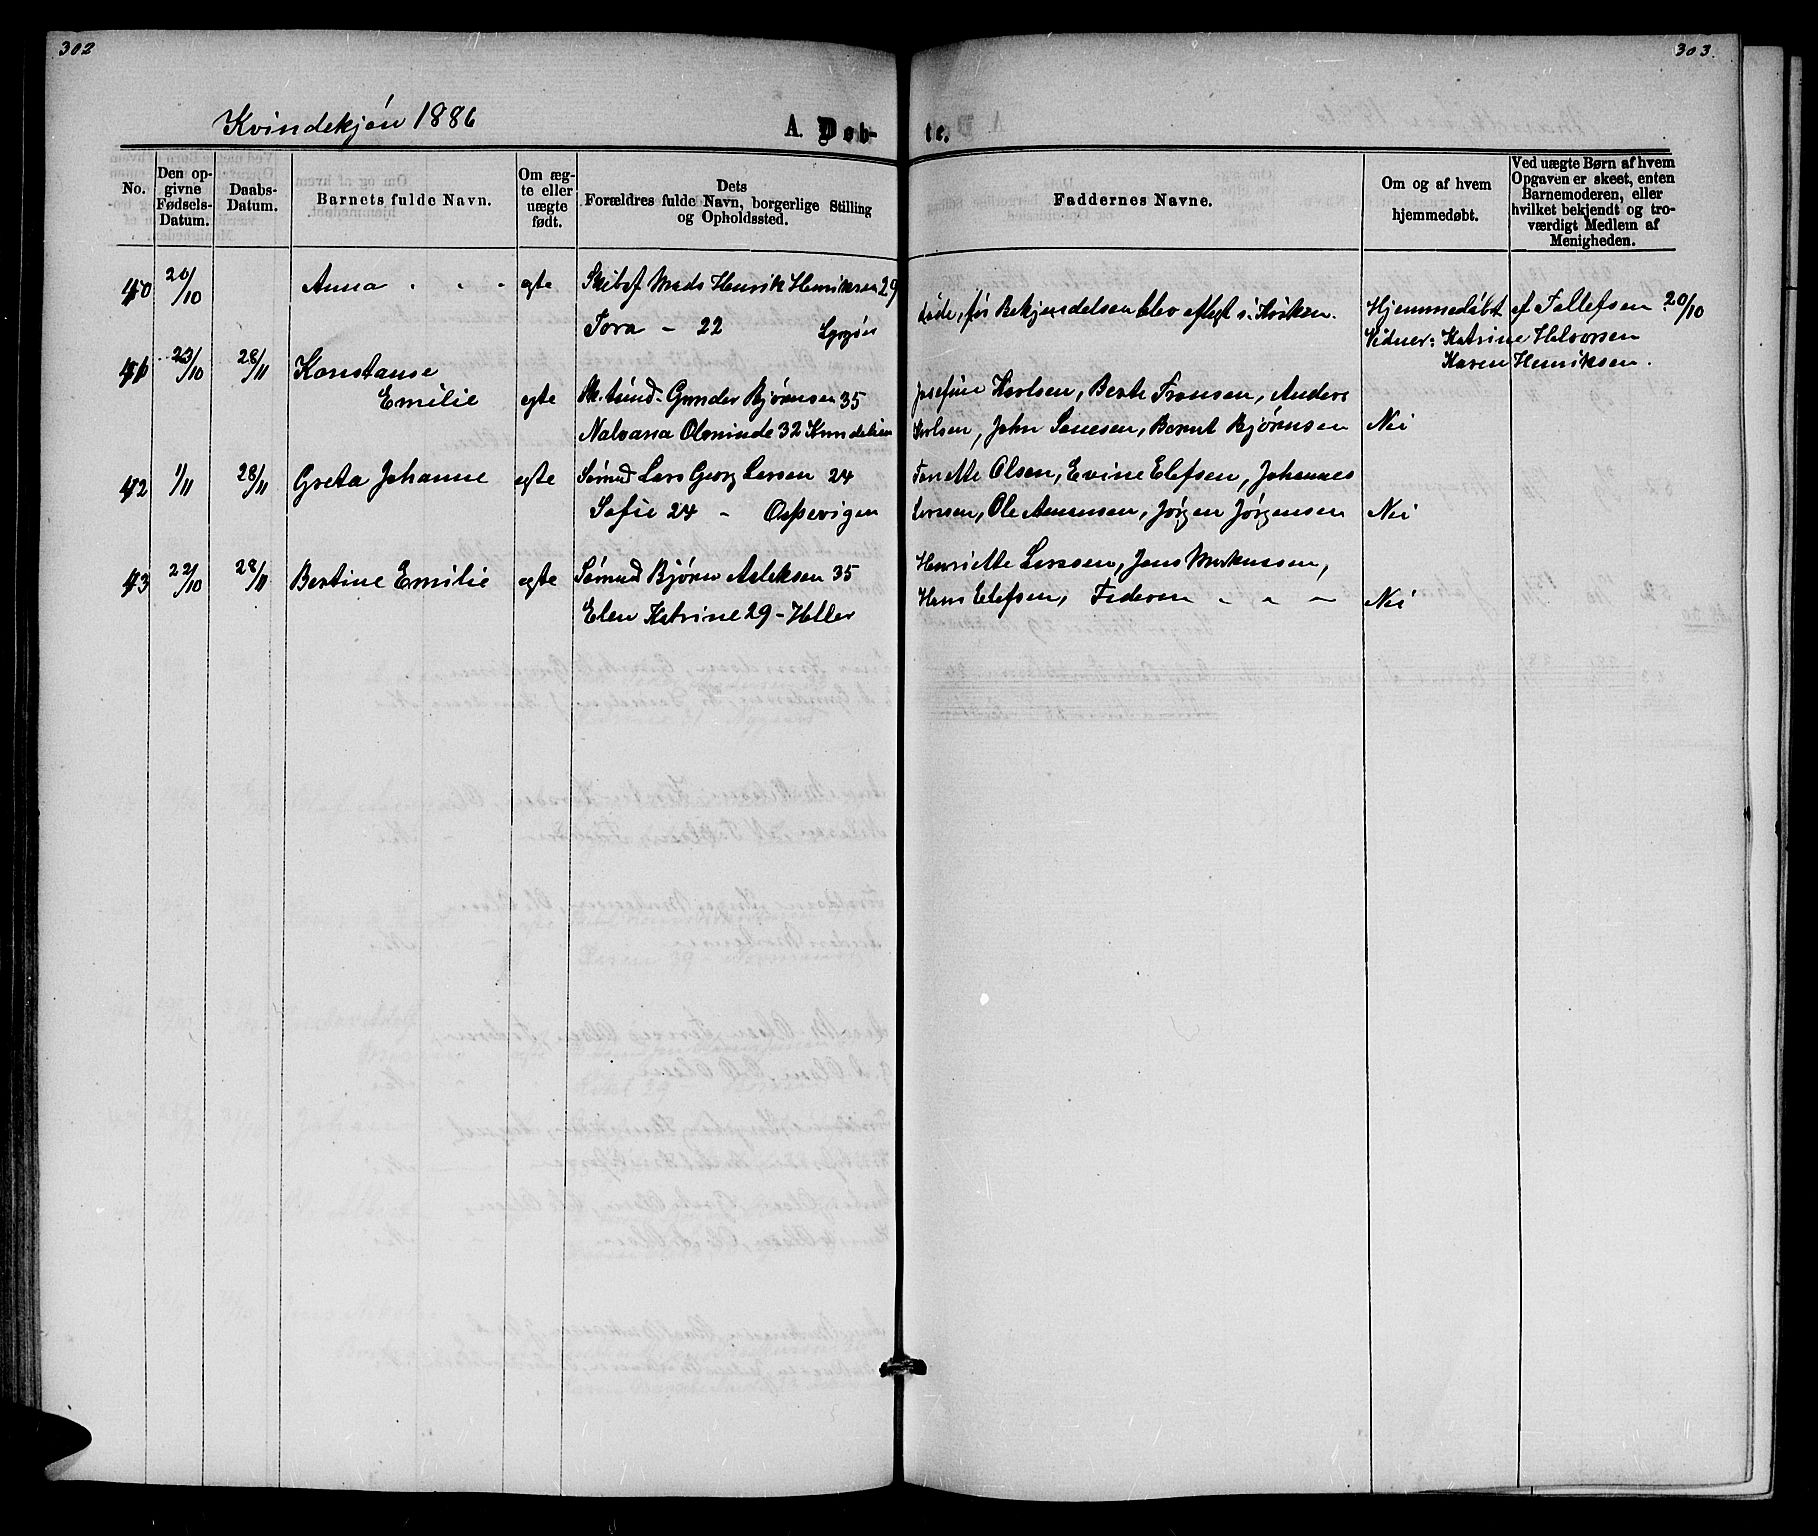 302
303.
Kvindekjøn 1886
A. Døb-
te.
No.
Den op-
givne
Fødsels-
Datum.
Daabs-
Datum.
Barnets fulde Navn.
Om æg-
te eller
uægte
født.
Dets
Forældres fulde Navn, borgerlige Stilling
og Opholdssted.
Faddernes Navne.
Om og af hvem
hjemmedøbt.
Ved uægte Børn af hvem
Opgaven er skeet, enten
Barnemoderen, eller
hvilket bekjendt og tro-
værdigt Medlem af
Menigheden.
40 20/10 Anna egte Skibsf Mads Henrik Henriksen 29
Tora - 22
Døde, før Bekjendelsen blev aflagt i Kirken. Hjemmedøbt af Tallefsen 20/10
Vidner: Katrine Halvorsen
Karen Henriksen.
41 23/10 28/11 Konstanse
Emilie egte Gunder Bjørnsen 35
32
Josefine Karlsen, Berte Fransen, Anders
Karlsen, John Bernt Bjørnsen Nei
42 1/11 28/11 Greta Johanne egte Sømnd Lars Georg Larsen 24
Sofie 24 - Ospevigen
Torette Olsen, Evine Elefsen, Johannes
Larssen, Ole Amunsen, Jørgen Jørgensen Nei
43 22/10 28/11 Bertine Emilie egte Sømnd Bjørn Asleksen 35
Elen Katrine 29 - Heller
Henriette Larssen, Jens Markussen,
Hans Elefsen, Faderen - - - Nei